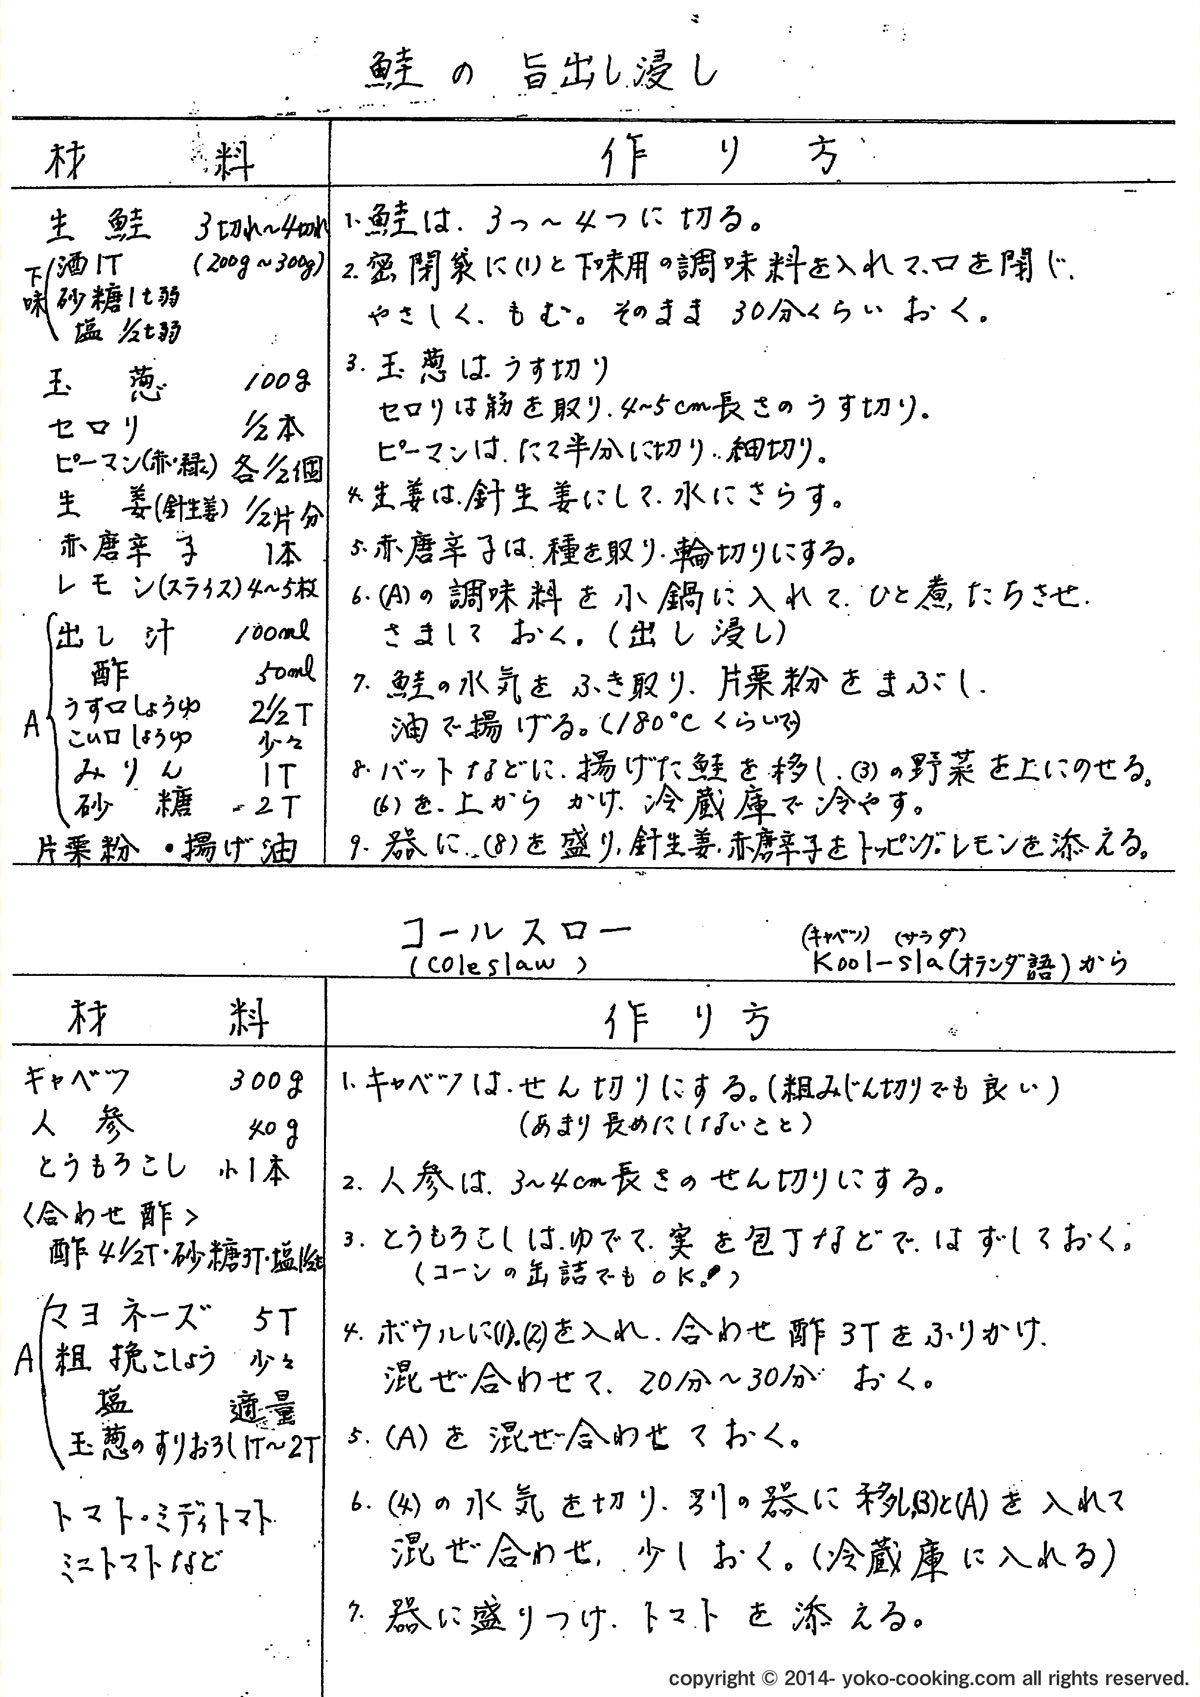 鮭の旨出し浸し
材料
作り方
生鮭 3切れ〜4切れ
(200g〜300g)
下味
酒1T
砂糖1t弱
塩1/2t弱
玉葱 100g
セロリ 1/2本
ピーマン(赤・緑) 各1/2個
生姜(針生姜) 1/2片分
赤唐辛子 1本
レモン(スライス)4〜5枚
A
出し汁 100ml
酢 50ml
うす口しょうゆ 2 1/2T
こい口しょうゆ 少々
みりん 1T
砂糖 2T
片栗粉・揚げ油
1. 鮭は、3つ〜4つに切る。
2. 密閉袋に(1)と下味用の調味料を入れて、口を閉じ、
やさしく、もむ。そのまま30分くらいおく。
3. 玉葱はうす切り
セロリは筋を取り、4〜5cm長さのうす切り。
ピーマンは、たて半分に切り、細切り。
4. 生姜は、針生姜にして、水にさらす。
5. 赤唐辛子は、種を取り、輪切りにする。
6. (A)の調味料を小鍋に入れて、ひと煮たちさせ、
さましておく。(出し浸し)
7. 鮭の水気をふき取り、片栗粉をまぶし、
油で揚げる。(180℃くらいで)
8. バットなどに、揚げた鮭を移し、(3)の野菜を上にのせる。
(6)を、上からかけ、冷蔵庫で冷やす。
9. 器に、(8)を盛り、針生姜、赤唐辛子をトッピング。レモンを添える。
コールスロー
(coleslaw)
(キャベツ) (サラダ)
Kool-sla(オランダ語)から
材料
作り方
キャベツ 300g
人参 40g
とうもろこし 小1本
<合わせ酢>
酢4 1/2T・砂糖3T・塩
A
マヨネーズ 5T
粗挽こしょう 少々
塩 適量
玉葱のすりおろし1T〜2T
トマト・ミディトマト
ミニトマトなど
1. キャベツは、せん切りにする。(粗みじん切りでも良い)
(あまり長めにしないこと)
2. 人参は、3〜4cm長さのせん切りにする。
3. とうもろこしは、ゆでて、実を包丁などで、はずしておく。
(コーンの缶詰でもOK!)
4. ボウルに(1)、(2)を入れ、合わせ酢3Tをふりかけ、
混ぜ合わせて、20分〜30分おく。
5. (A)を混ぜ合わせておく。
6. (4)の水気を切り、別の器に移し、(3)と(A)を入れて
混ぜ合わせ、少しおく。(冷蔵庫に入れる)
7. 器に盛りつけ、トマトを添える。
copyright © 2014- yoko-cooking.com all rights reserved.